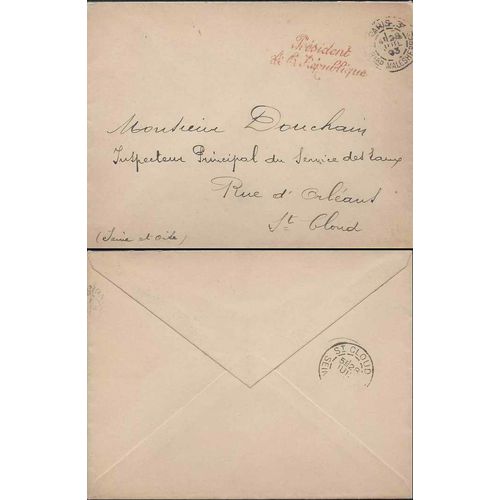 Président
de la République
PARIS
28
JUIL
93
Monsieur Douchain
Inspecteur Principal du Service des Eaux
Rue d'Orléans
St Cloud
(Seine et Oise)
ST CLOUD
28